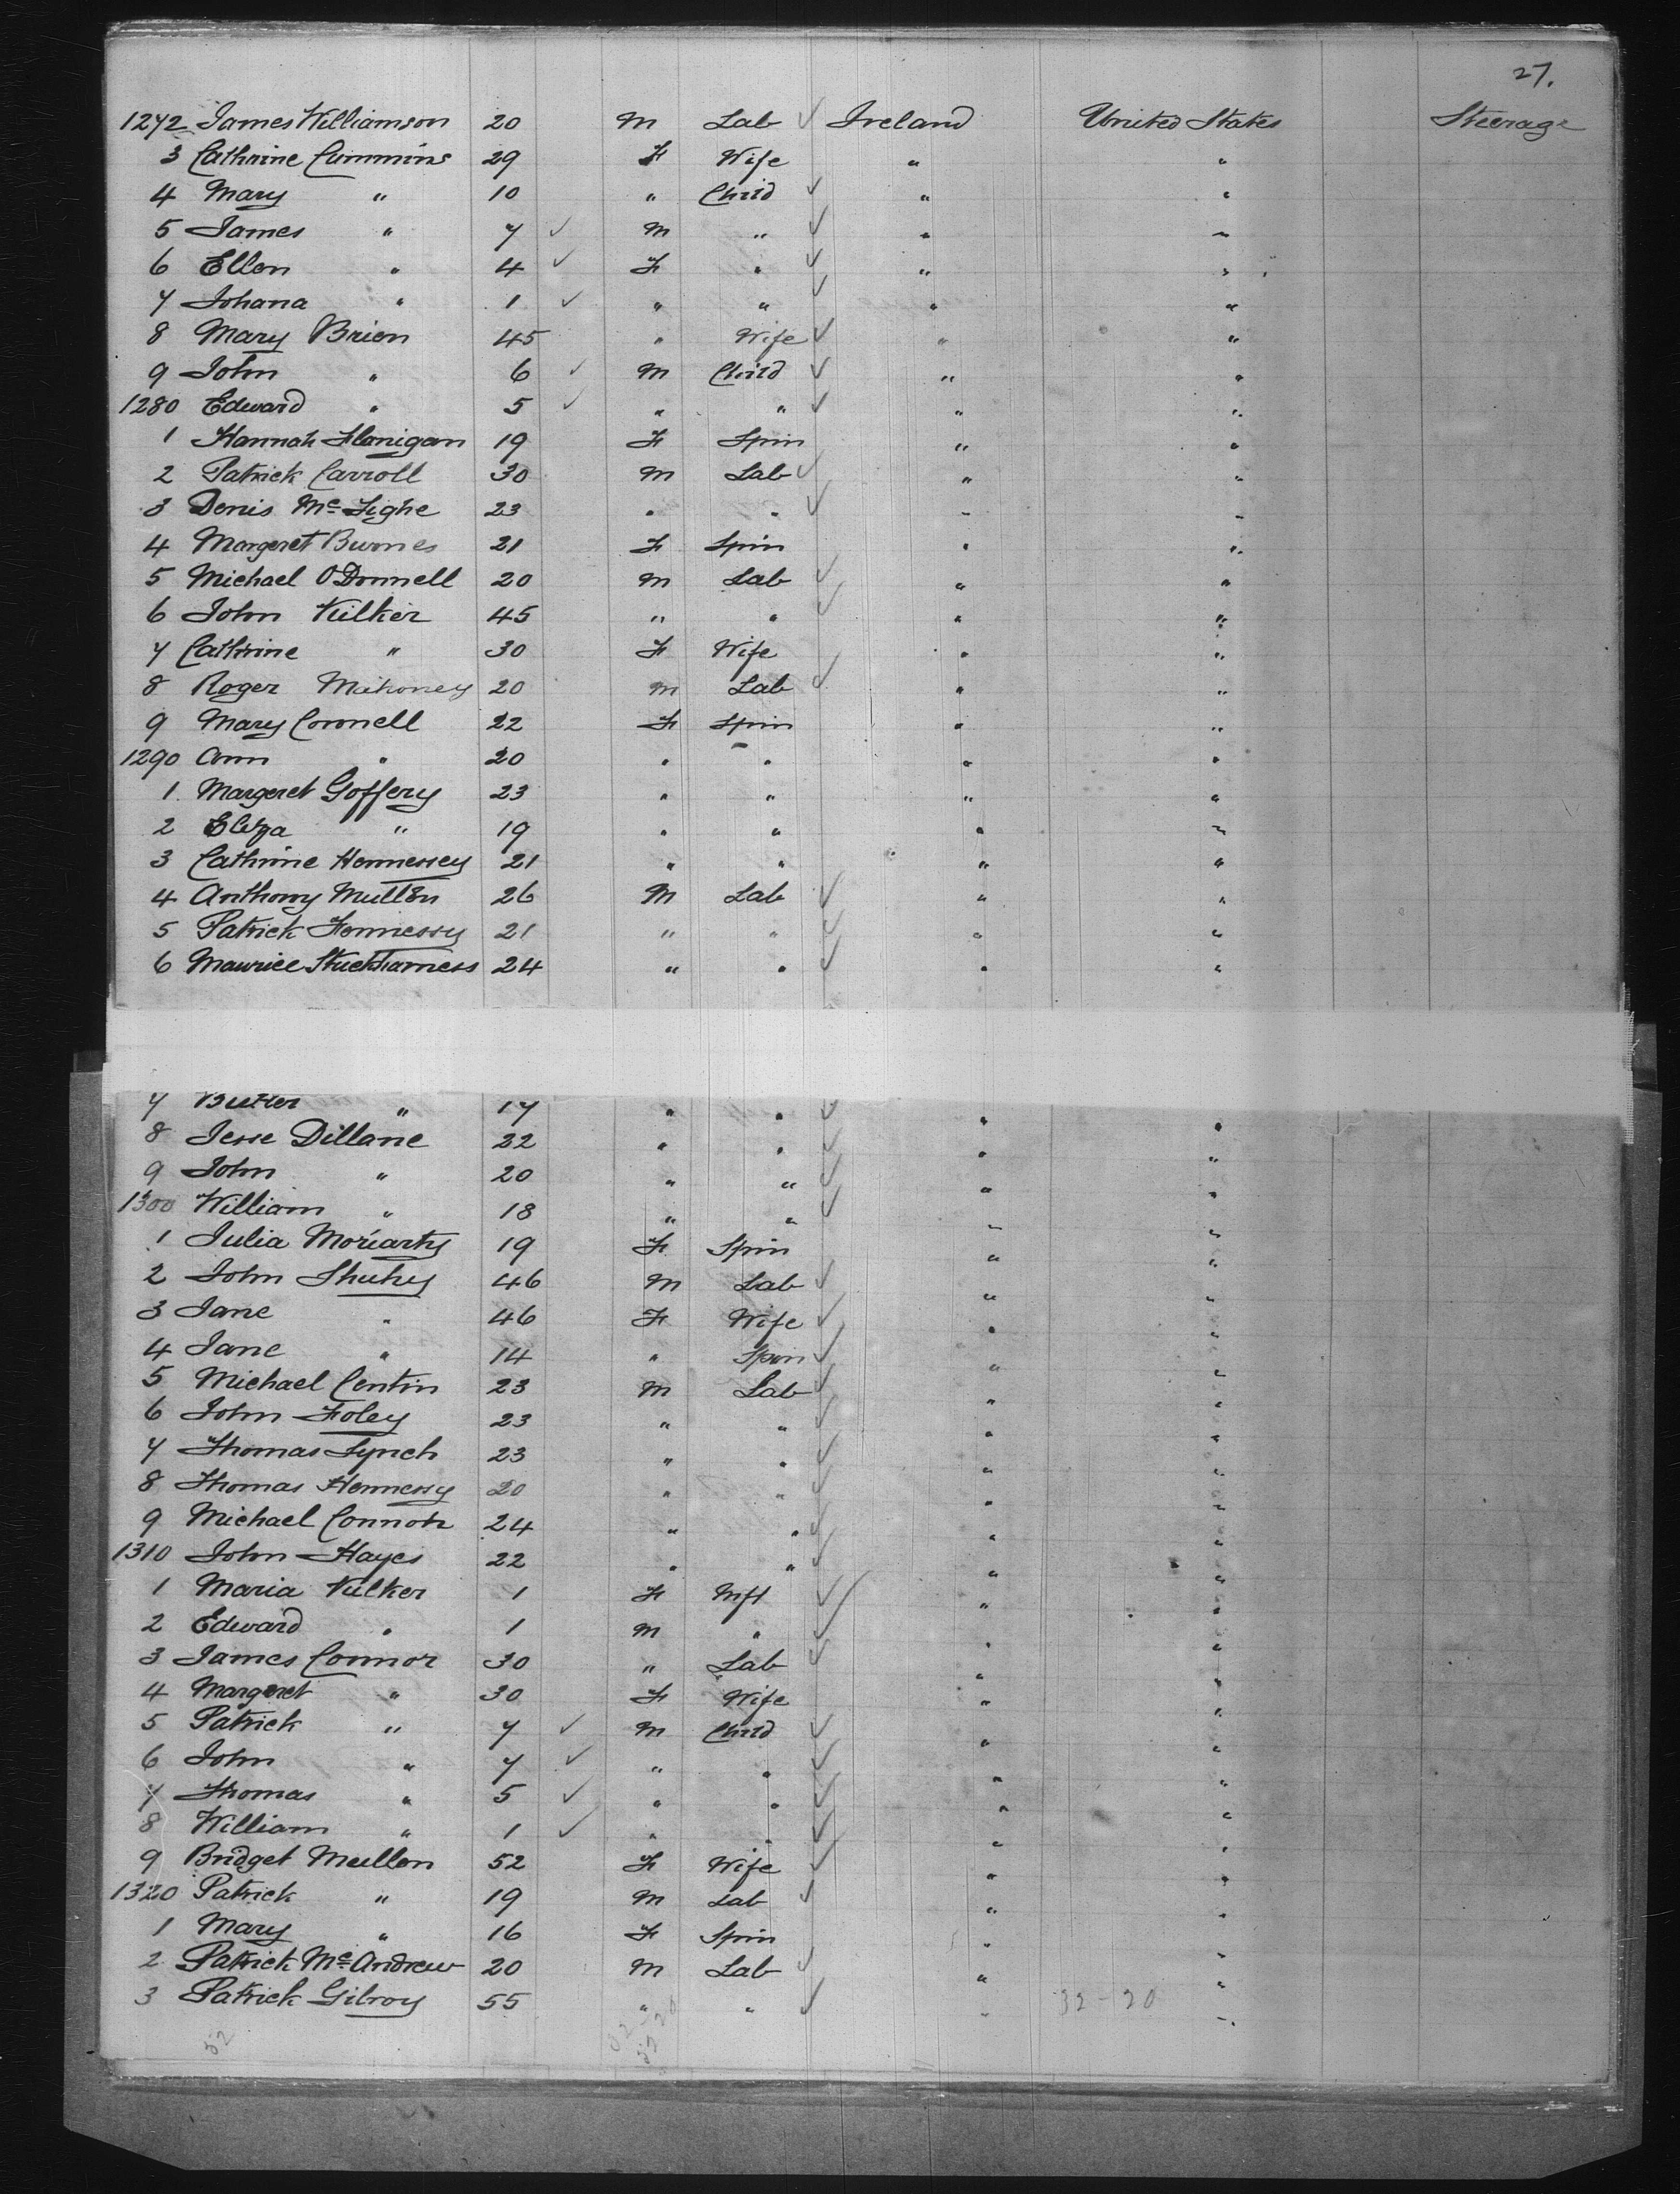 27.
1272 James Williamson 20 M Lab ✓ Ireland United States Steerage
3 Cathrine Cummins 29 F Wife " "
4 Mary " 10 " Child ✓ " "
5 James " 7 ✓ M " ✓ " "
6 Ellen " 4 ✓ F " ✓ " "
7 Johana " 1 ✓ " " ✓ " "
8 Mary Brien 45 " Wife ✓ " "
9 John " 6 ✓ M Child ✓ " "
1280 Edward " 5 ✓ " " ✓ " "
1 Hannah Flanigan 19 F Spin " "
2 Patrick Carroll 30 M Lab ✓ " "
3 Denis Mc Tighe 23 " " ✓ " "
4 Margeret Burnes 21 F Spin " "
5 Michael O'Donnell 20 M Lab ✓ " "
6 John Kilker 45 " " ✓ " "
7 Cathrine " 30 F Wife " "
8 Roger Mahoney 20 M Lab ✓ " "
9 Mary Connell 22 F Spin " "
1290 Ann " 20 " " " "
1 Margeret Goffery 23 " " " "
2 Eliza " 19 " " " "
3 Cathrine Hennessey 21 " " " "
4 Anthony Mullen 26 M Lab ✓ " "
5 Patrick Hennessy 21 " " ✓ " "
6 Maurice 24 " " ✓ " "
7 " 17 " " ✓ " "
8 Jesse Dillane 22 " " ✓ " "
9 John " 20 " " ✓ " "
1300 William " 18 " " ✓ " "
1 Julia Moriarty 19 F Spin " "
2 John Shuhy 46 M Lab ✓ " "
3 Jane " 46 F Wife ✓ " "
4 Jane " 14 " Spin ✓ " "
5 Michael Centin 23 M Lab ✓ " "
6 John Foley 23 " " ✓ " "
7 Thomas Lynch 23 " " ✓ " "
8 Thomas Hennessy 20 " " ✓ " "
9 Michael Connor 24 " " ✓ " "
1310 John Hayes 22 " " ✓ " "
1 Maria Kilker 1 F Inft ✓ " "
2 Edward " 1 M " ✓ " "
3 James Connor 30 " Lab ✓ " "
4 Margeret " 30 F Wife " "
5 Patrick " 7 ✓ M Child ✓ " "
6 John " 7 ✓ " " ✓ " "
7 Thomas " 5 ✓ " " ✓ " "
8 William " 1 ✓ " " ✓ " "
9 Bridget Mullen 52 F Wife ✓ " "
1320 Patrick " 19 M Lab ✓ " "
1 Mary " 16 F Spin " "
2 Patrick Mc Andrew 20 M Lab ✓ " "
3 Patrick Gilroy 55 " " ✓ " "
32-20
52